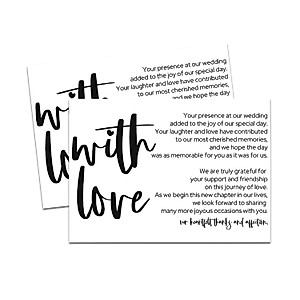 Your presence at our wedding
added to the joy of our special day.
Your laughter and love have contributed
to our most cherished memories,
and we hope the day
with
lo
Your presence at our wedding
added to the joy of our special day.
Your laughter and love have contributed
to our most cherished memories,
and we hope the day
was as memorable for you as it was for us.
with
love
We are truly grateful for
your support and friendship
on this journey of love.
As we begin this new chapter in our lives,
we look forward to sharing
many more joyous occasions with you.
our heartfelt thanks and affection.